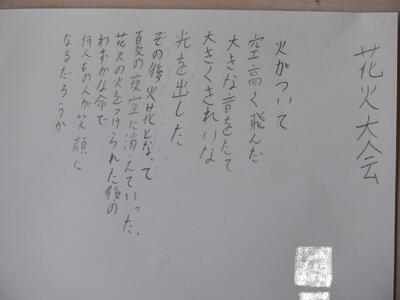 花火大会
火がついて
空高く飛んだ
大きな音をたて
大きくきれいな
光を出した
その後火花となって
夏の夜空に消えていった。
花火の火をつけられた後の
わずかな命で
何人もの人が笑顔に
なるだろうか